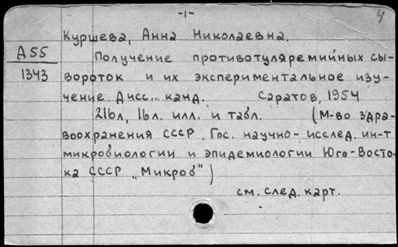 -1-
4
Куршева, Анна Николаевна.
Д55
1343
Получение противотуляремийных сы-
вороток и их экспериментальное изу-
чение. Дисс... канд. Саратов, 1954
216л, 16л. илл. и табл. (М-во здра-
воохранения СССР. Гос. научно-исслед. ин-т
микробиологии и эпидемиологии Юго-Восто-
ка СССР „Микроб")
см. след. карт.